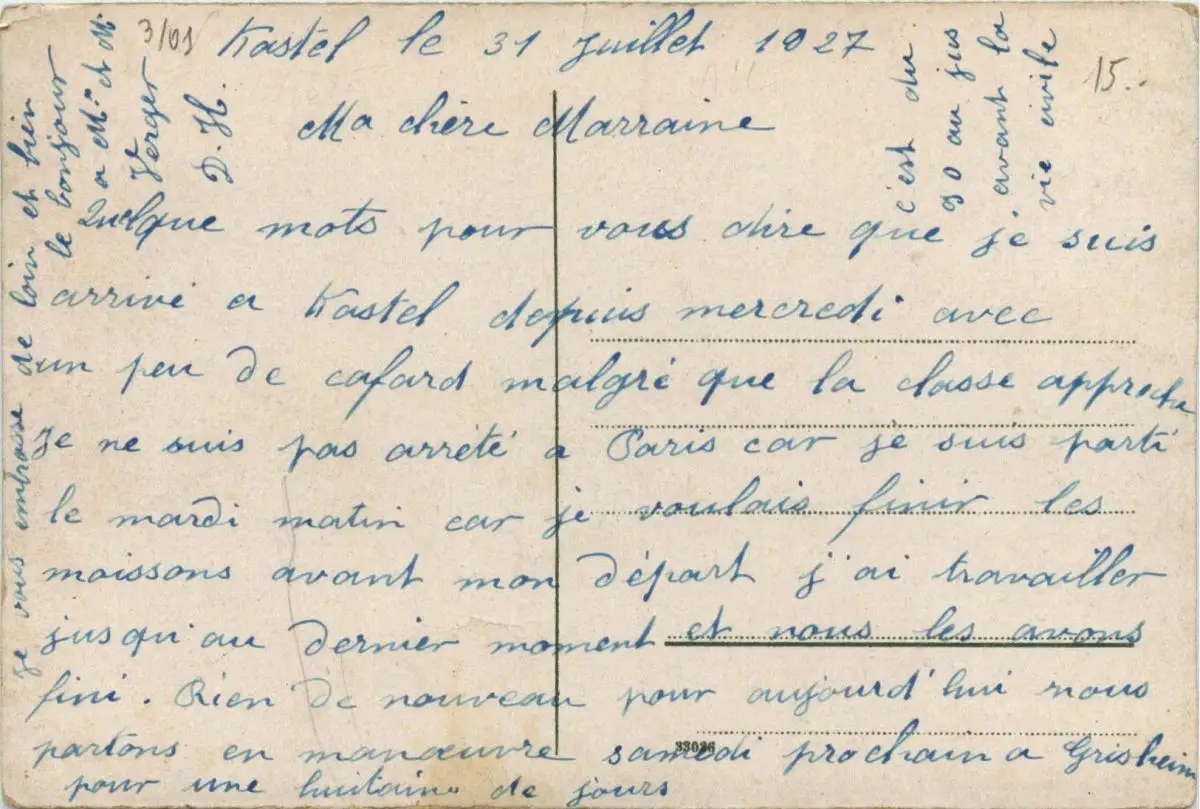 3/01
Kastel le 31 Juillet 1927
15..
Ma chère Marraine
Quelque mots pour vous dire que je suis
arrivé a Kastel depuis mercredi avec
un peu de cafard malgré que la classe approche
Je ne suis pas arrété a Paris car je suis parti
le mardi matin car je voulais finir les
moissons avant mon départ j'ai travailler
jusqu'au dernier moment et nous les avons
fini. Rien de nouveau pour aujourd'hui nous
partons en manœuvre samedi prochain a Grisheim
pour une huitaine de jours
33036
Je vous embrasse de loin et bien
le bonjour
a Me et M.
Verger
D. H.
c'est du
90 au jus
avant la
vie civile